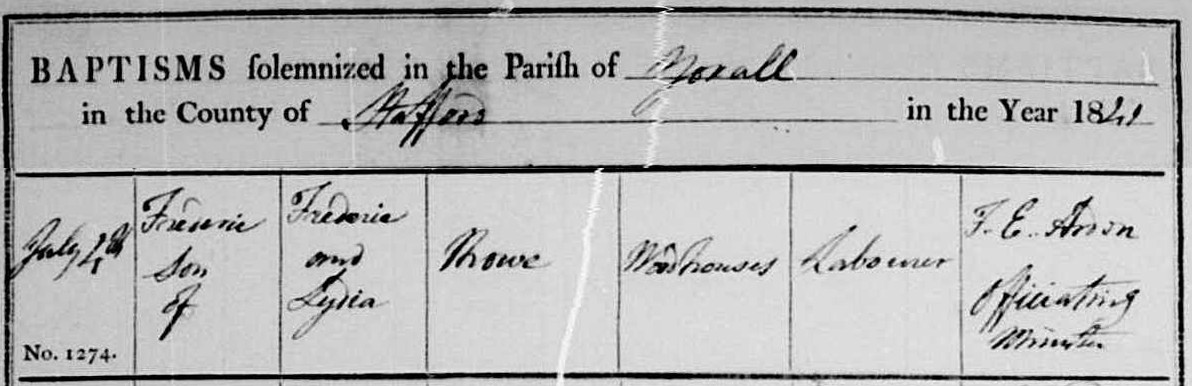 BAPTISMS solemnized in the Parish of Yoxall
in the County of Stafford in the Year 1841
July 4th
No. 1274.
Frederic
Son
of
Frederic
and
Lydia
Rowe
Woodhouses
Labourer
F. E. Arden
Officiating
Minister